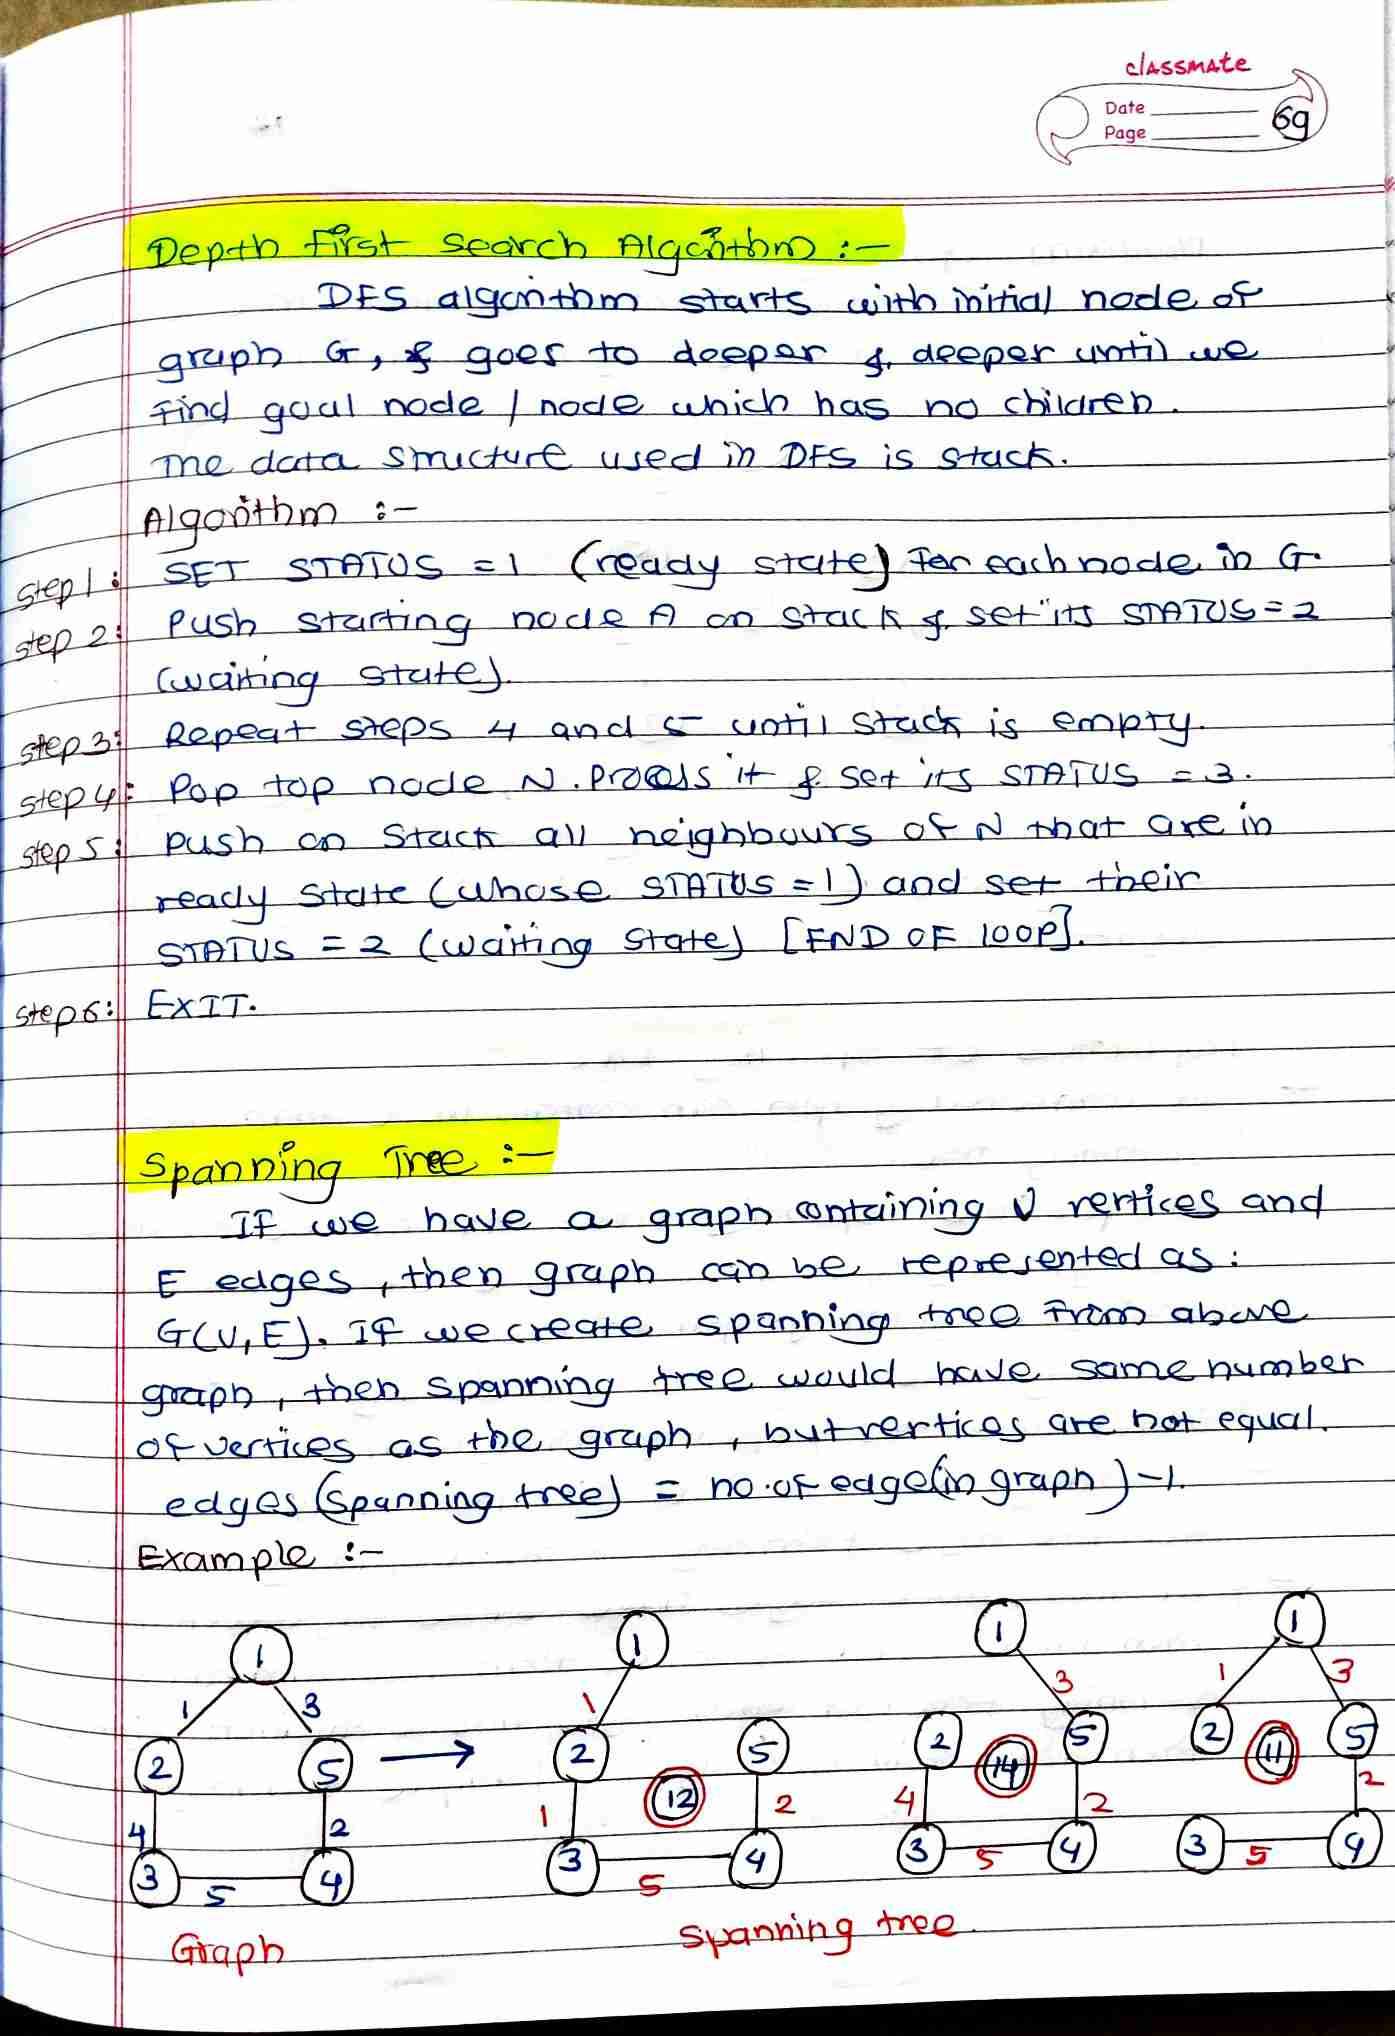 classmate
Date
Page 69
Depth First Search Algorithm :-
DFS algorithm starts with initial node of
graph G, & goes to deeper & deeper until we
find goal node / node which has no children.
The data structure used in DFS is stack.
Algorithm :-
step 1: SET STATUS = 1 (ready state) for each node in G
step 2: Push starting node A on stack & set its STATUS = 2
(waiting state).
step 3: Repeat steps 4 and 5 until stack is empty.
step 4: Pop top node N. Process it & set its STATUS = 3.
step 5: Push on stack all neighbours of N that are in
ready state (whose STATUS = 1) and set their
STATUS = 2 (waiting state) [END OF LOOP].
step 6: EXIT.
Spanning Tree :-
If we have a graph containing V vertices and
E edges, then graph can be represented as :
G(V, E). If we create spanning tree from above
graph, then spanning tree would have same number
of vertices as the graph, but vertices are not equal.
edges (spanning tree) = no. of edge (in graph) - 1.
Example :-
1 1 1 1
1 3 1 3 1 3
2 5 → 2 5 2 5 2 5
12 14 11
4 2 1 2 4 2 2
3 4 3 4 3 4 3 4
5 5 5 5
Graph Spanning tree